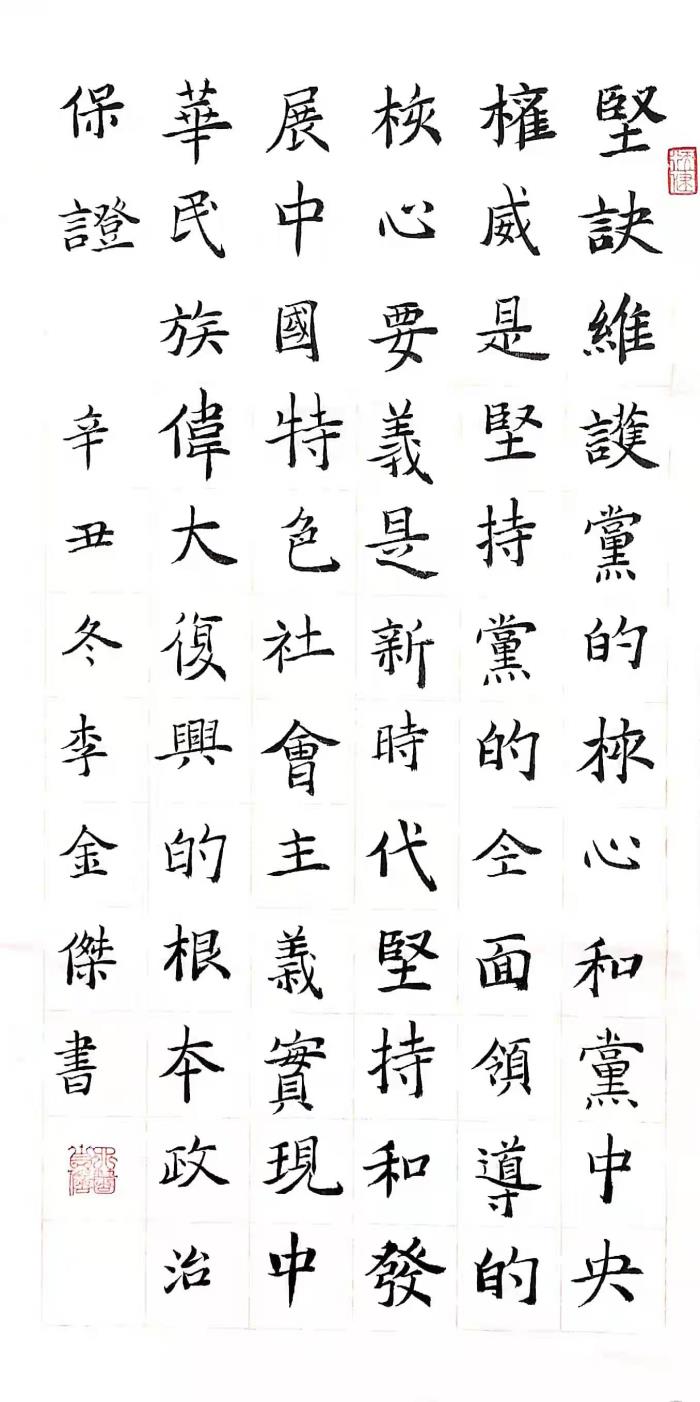 堅訣維護黨的核心和黨中央
權威是堅持黨的全面領導的
核心要義是新時代堅持和發
展中國特色社會主義實現中
華民族偉大復興的根本政治
保證 辛丑冬李金傑書